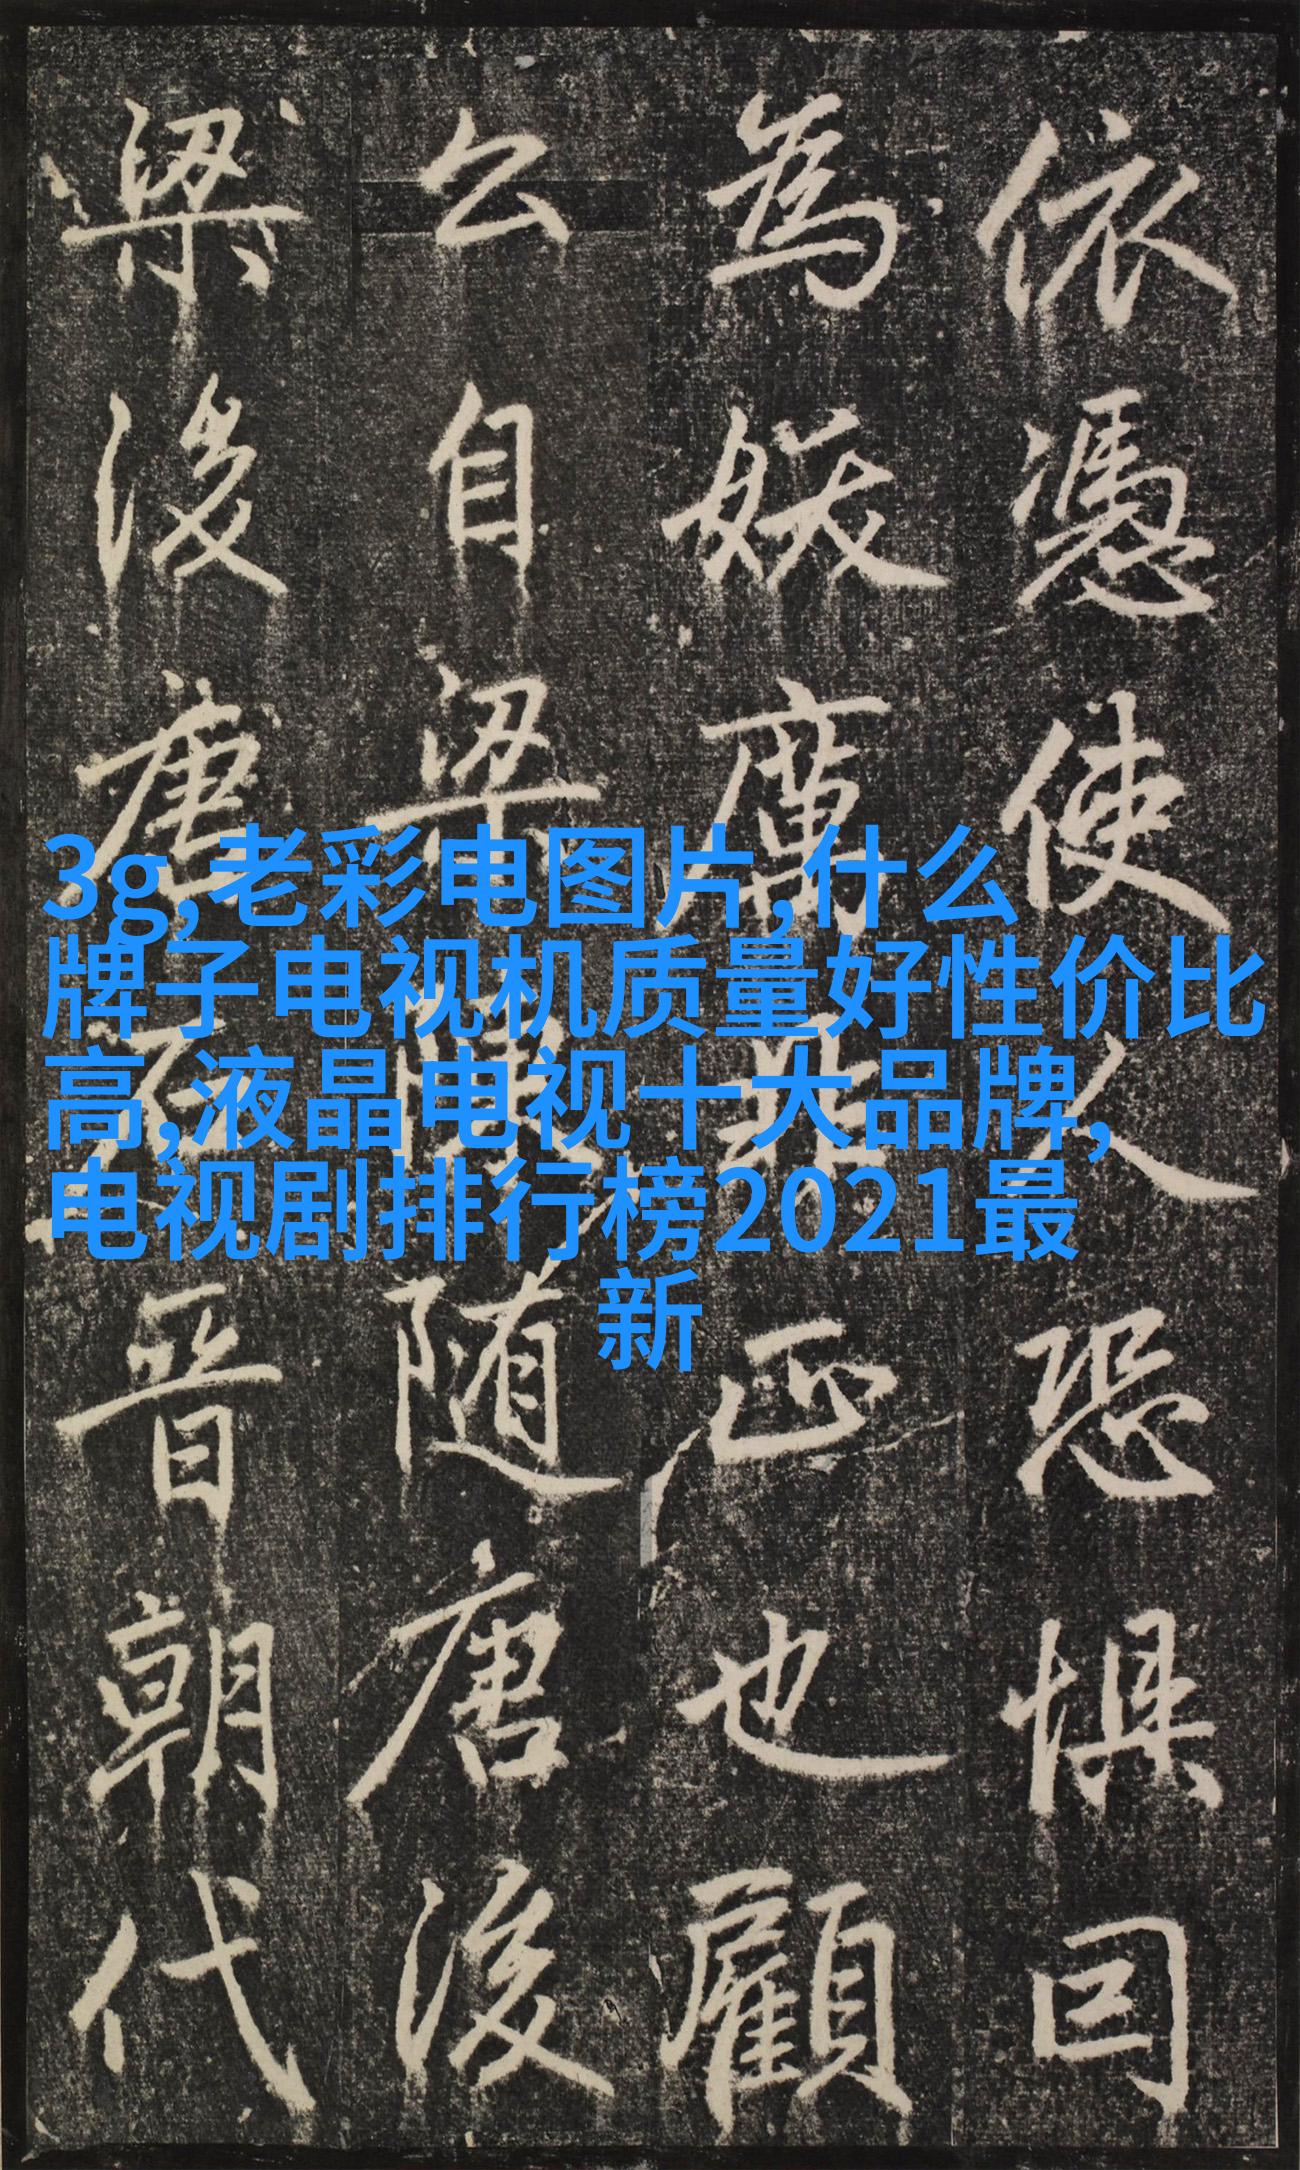 3g,老彩电图片,什么
牌子电视机质量好性价比
高,液晶电视十大品牌,
电视剧排行榜2021最
新
依憑使人恐惧
為妖厲非正也顧
公自梁随唐後
梁後唐石晉朝代